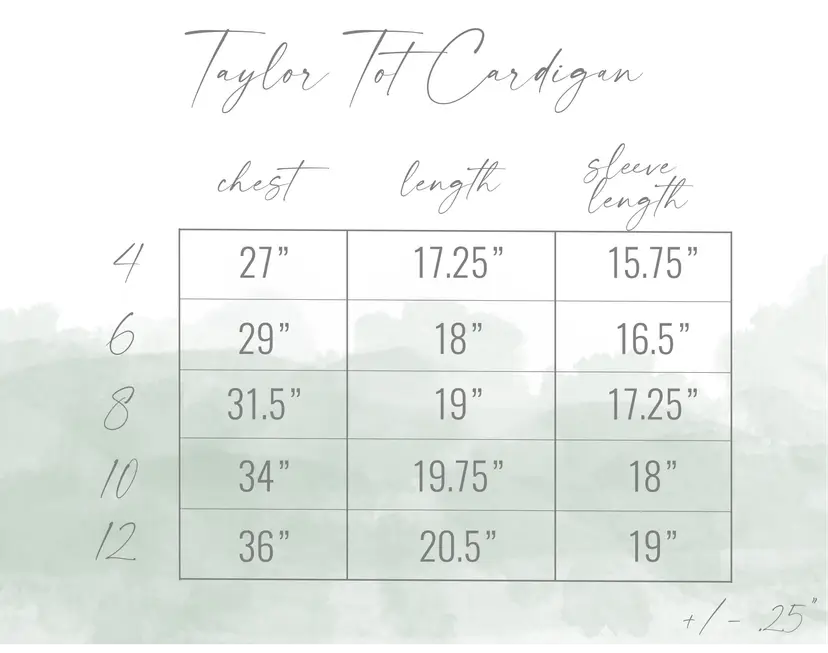 Taylor Tot Cardigan
chest length sleeve length
4 27” 17.25” 15.75”
6 29” 18” 16.5”
8 31.5” 19” 17.25”
10 34” 19.75” 18”
12 36” 20.5” 19”
+/- .25"